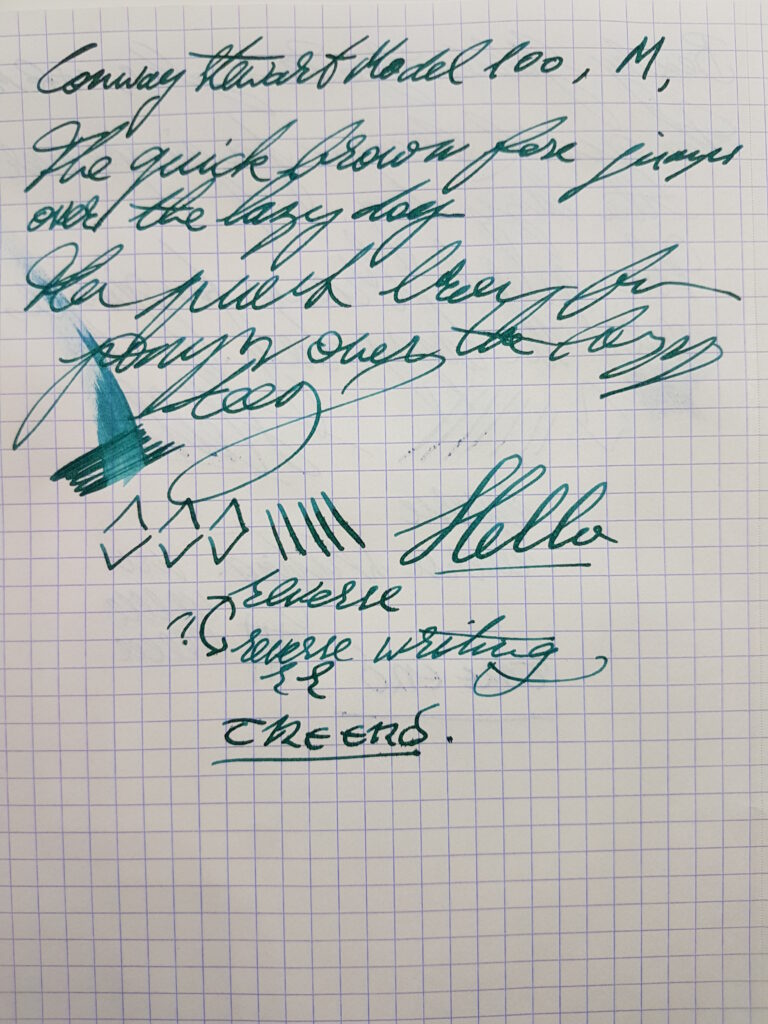 Conway Stewart Model 100, M,
The quick brown fox jumps
over the lazy dog
The quick brown fox
jumps over the lazy
dog
Hello
reverse
?
reverse writing
THE END.